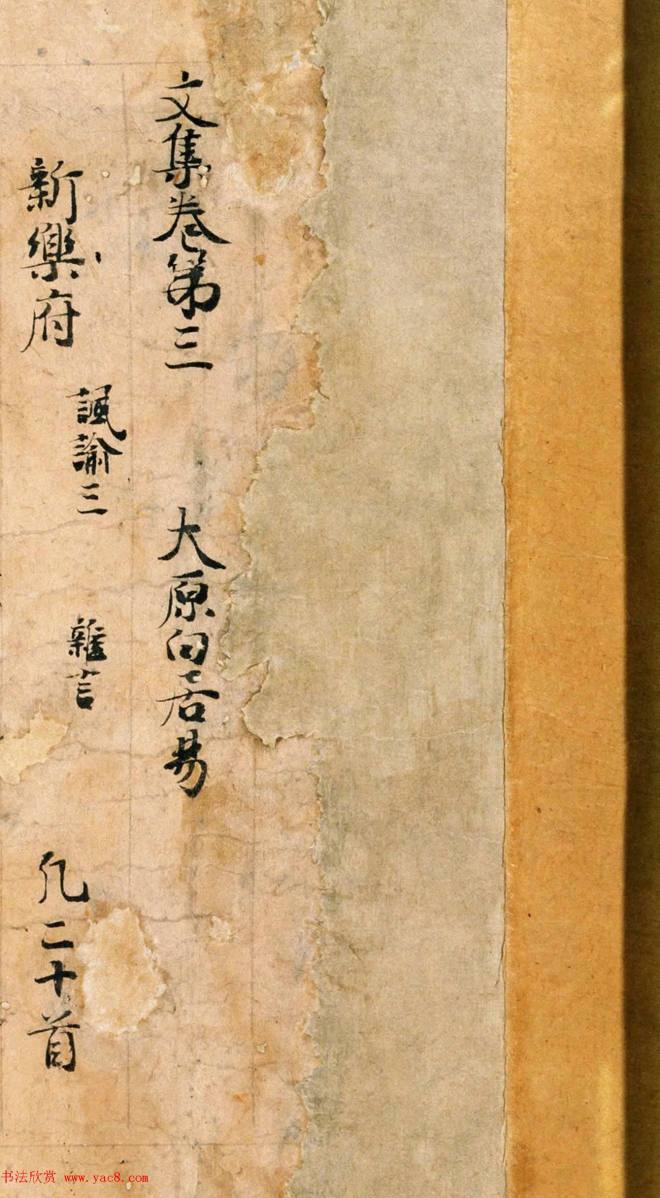 文集卷第三　大原白居易
新樂府　諷諭三　雜言　凡二十首
书法欣赏 www.yac8.com